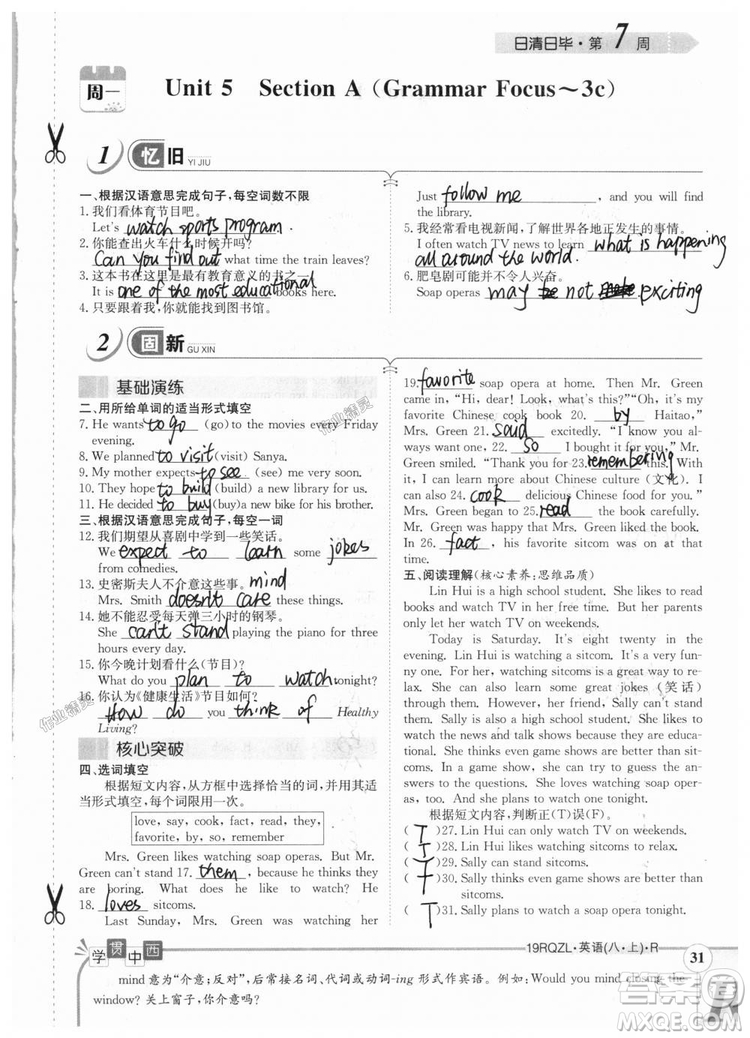 日清日毕·第7周
周一
Unit 5 Section A (Grammar Focus~3c)
1 忆旧 YI JIU
一、根据汉语意思完成句子,每空词数不限
1. 我们看体育节目吧。
Let's watch sports program.
2. 你能查出火车什么时候开吗?
Can you find out what time the train leaves?
3. 这本书在这里是最有教育意义的书之一。
It is one of the most educational books here.
4. 只要跟着我,你就会找到图书馆。
Just follow me, and you will find
the library.
5. 我经常看电视新闻,了解世界各地正发生的事情。
I often watch TV news to learn what is happening
all around the world.
6. 肥皂剧可能并不令人兴奋。
Soap operas may be not be exciting
2 固新 GU XIN
基础演练
二、用所给单词的适当形式填空
7. He wants to go (go) to the movies every Friday
evening.
8. We planned to visit (visit) Sanya.
9. My mother expects to see (see) me.
10. They hope to build (build) a new library for us.
11. He decided to buy (buy) a new bike for his brother.
三、根据汉语意思完成句子,每空一词
12. 我们期望从喜剧中学到一些笑话。
We expect to learn some jokes
from comedies.
13. 史密斯夫人不介意这些事。 mind
Mrs. Smith doesn't care these things.
14. 她不能忍受每天弹三小时的钢琴。
She can't stand playing the piano for three
hours every day.
15. 你今晚计划看什么(节目)?
What do you plan to watch tonight?
16. 你认为《健康生活》节目如何?
How do you think of Healthy
Living?
核心突破
四、选词填空
根据短文内容,从方框中选择恰当的词,并用其适
当形式填空,每个词限用一次。
love, say, cook, fact, read, they,
favorite, by, so, remember
Mrs. Green likes watching soap operas. But Mr.
Green can't stand 17. them, because he thinks they
are boring. What does he like to watch? He
18. loves sitcoms.
Last Sunday, Mrs. Green was watching her
19. favorite soap opera at home. Then Mr. Green
came in, "Hi, dear! Look, what's this?" "Oh, it's my
favorite Chinese cook book 20. by Haitao,"
Mrs. Green 21. said excitedly. "I know you al-
ways want one. 22. so I bought it for you," Mr.
Green smiled. "Thank you for 23. remembering this. With
it, I can learn more about Chinese culture (文化). I
can also 24. cook delicious Chinese food for you."
Mrs. Green began to 25. read the book carefully.
Mr. Green was happy that Mrs. Green liked the book.
In 26. fact, his favorite sitcom was on at that
moment.
五、阅读理解(核心素养:思维品质)
Lin Hui is a high school student. She likes to read
books and watch TV in her free time. But her parents
only let her watch TV on weekends.
Today is Saturday. It's eight twenty in the
evening. Lin Hui is watching a sitcom. It's very
funny. For her, watching sitcoms is a great way to re-
lax. She can also learn some great jokes (笑话)
through them. However, her friend, Sally can't stand
sitcoms. Sally is also a high school student. She likes
news and talk shows. She thinks she can learn a lot
from them. She thinks even game shows are better than
sitcoms. She also likes watching soap oper-
as. And she plans to watch one tonight.
根据短文内容,判断正(T)误(F)。
( T )27. Lin Hui can only watch TV on weekends.
( T )28. Lin Hui likes watching sitcoms to relax.
29. Sally can stand sitcoms.
31. Sally plans to watch sitcoms tonight.
学贯中西
19RQZL·英语(八·上)·R
31
mind 意为“介意;反对”,后常接名词、代词或动词-ing 形式作宾语。例如:Would you mind closing the
window? 关上窗子,你介意吗?
作业精灵
作业精灵
答案圈
MXQE.COM